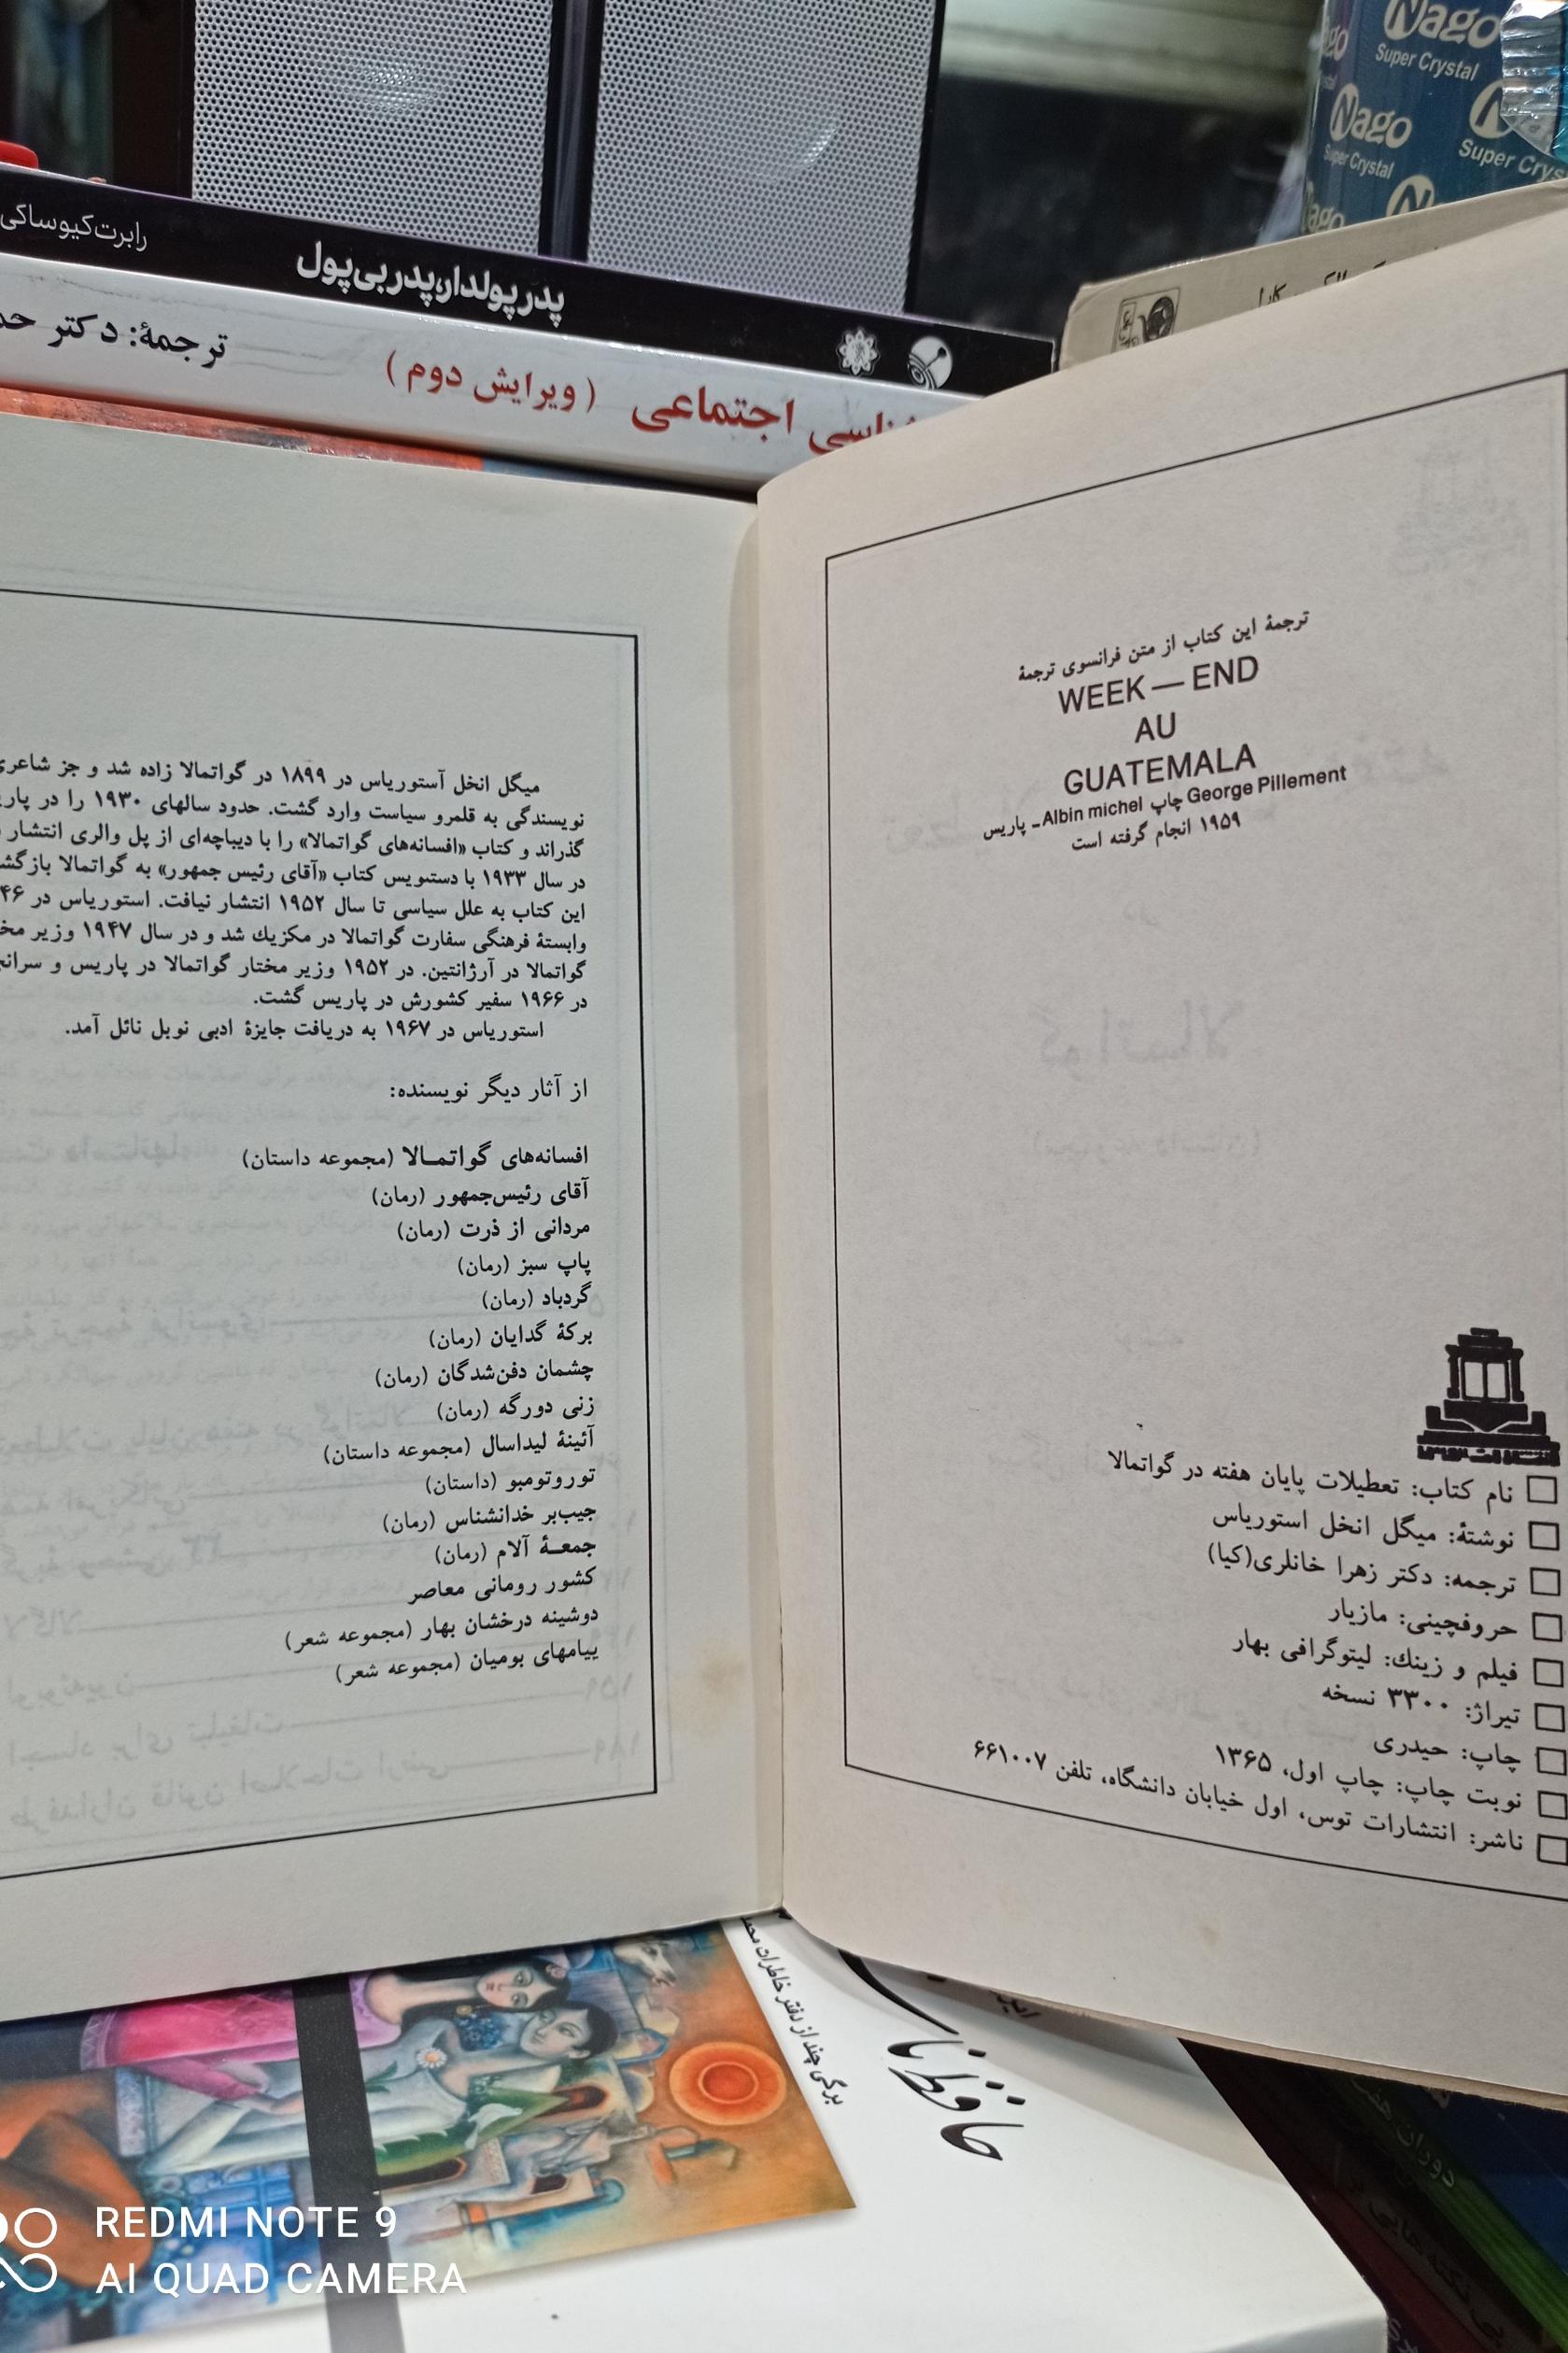 Nago
Super Crystal
Nago
Super Crystal
Super Crys
رابرت کیوساکی
پدر پولدار، پدر بی‌پول
ترجمهٔ: دکتر
اجتماعی (ویرایش دوم)
ترجمهٔ این کتاب از متن فرانسوی ترجمهٔ
WEEK — END
AU
GUATEMALA
George Pillement چاپ Albin michel ـ پاریس
۱۹۵۹ انجام گرفته است
نام کتاب: تعطیلات پایان هفته در گواتمالا
نوشتهٔ: میگل انخل استوریاس
ترجمه: دکتر زهرا خانلری(کیا)
حروفچینی: مازیار
فیلم و زینك: لیتوگرافی بهار
تیراژ: ۳۳۰۰ نسخه
چاپ: حیدری
نوبت چاپ: چاپ اول، ۱۳۶۵
ناشر: انتشارات توس، اول خیابان دانشگاه، تلفن ۶۶۱۰۰۷
میگل انخل آستوریاس در ۱۸۹۹ در گواتمالا زاده شد و جز شاعری
نویسندگی به قلمرو سیاست وارد گشت. حدود سالهای ۱۹۳۰ را در
گذراند و کتاب «افسانه‌های گواتمالا» را با دیباچه‌ای از پل والری انتشار
در سال ۱۹۳۳ با دستنویس کتاب «آقای رئیس جمهور» به گواتمالا
این کتاب به علل سیاسی تا سال ۱۹۵۲ انتشار نیافت. استوریاس در
وابستهٔ فرهنگی سفارت گواتمالا در مکزیك شد و در سال ۱۹۴۷ وزیر
گواتمالا در آرژانتین. در ۱۹۵۲ وزیر مختار گواتمالا در پاریس و
در ۱۹۶۶ سفیر کشورش در پاریس گشت.
استوریاس در ۱۹۶۷ به دریافت جایزهٔ ادبی نوبل نائل آمد.
از آثار دیگر نویسنده:
افسانه‌های گواتمـالا (مجموعه داستان)
آقای رئیس‌جمهور (رمان)
مردانی از ذرت (رمان)
پاپ سبز (رمان)
گردباد (رمان)
برکهٔ گدایان (رمان)
چشمان دفن‌شدگان (رمان)
زنی دورگه (رمان)
آئینهٔ لیداسال (مجموعه داستان)
توروتومبو (داستان)
جیب‌بر خدانشناس (رمان)
جمعـهٔ آلام (رمان)
کشور رومانی معاصر
دوشینه درخشان بهار (مجموعه شعر)
پیامهای بومیان (مجموعه شعر)
برگی چند از دفتر خاطرات
REDMI NOTE 9
AI QUAD CAMERA